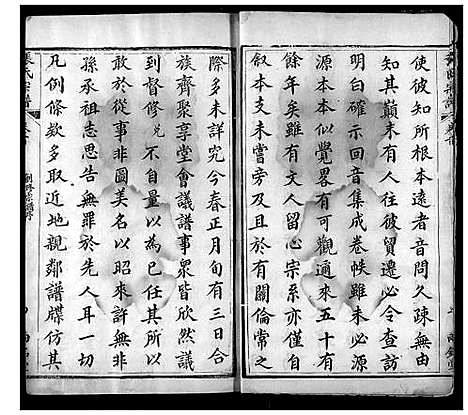 使彼知所根本遠者音問久疎無由
知其巔末有人經貿遷必令查訪
明白確實回音集成卷帙雖未必源
源本本似覺畧有可觀適來五十有
餘年矣雖有文人留心宗系亦僅自
叙本支未嘗旁及於有關倫常之
際多未詳究今春正月旬有三日合
族齊聚享堂會議譜事衆皆欣然議
到督修兌不自量以此為己任其所以
敢於從事非圖美名以昭來許無以
孫承祖志思告無罪於先人耳一切
凡例條欵多取近地親鄰譜牒仿其
氏宗譜